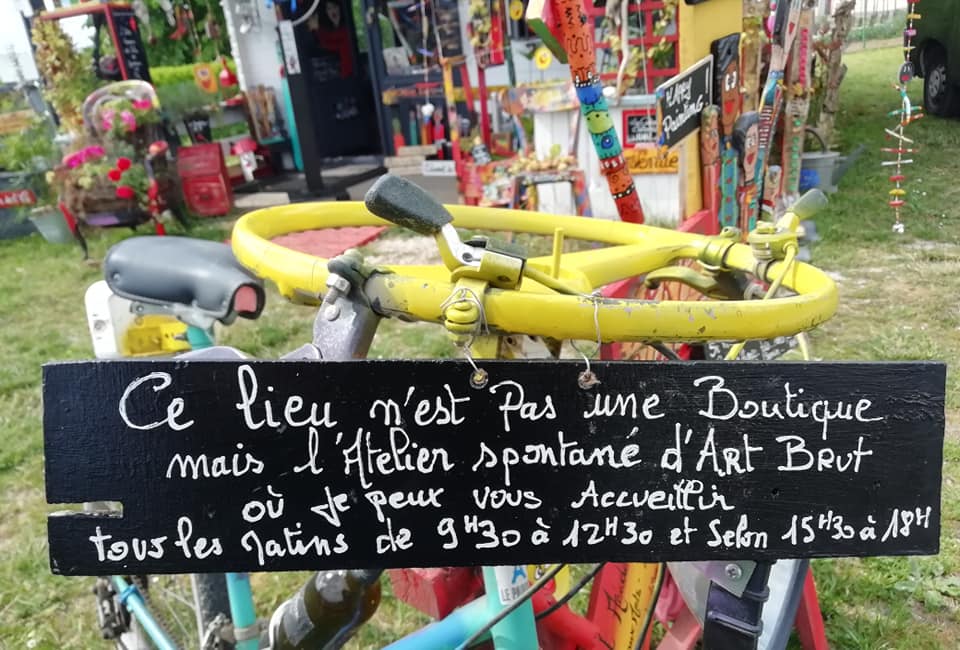 Ce lieu n'est Pas une Boutique
mais l'Atelier spontané d'Art Brut
où je peux vous Accueillir
tous les Matins de 9H30 à 12H30 et Selon 15H30 à 18H
HAPPY
Painting!